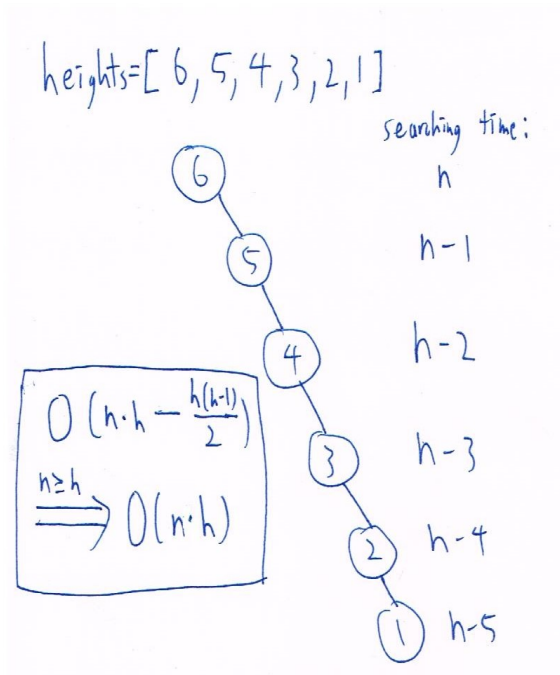 heights=[6,5,4,3,2,1]
searching time:
6 n
5 n-1
4 n-2
3 n-3
2 n-4
1 n-5
O(n·h - h(h-1)/2)
n≥h
⟹ O(n·h)